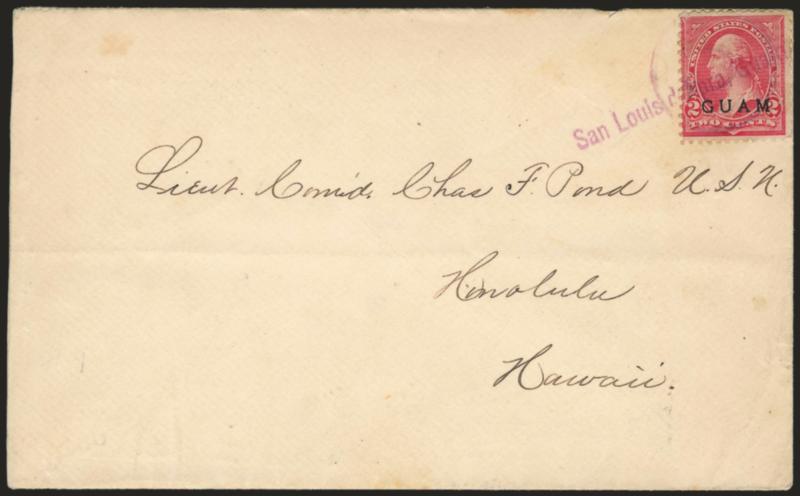 UNITED STATES POSTAGE
GUAM
2 2
TWO CENTS
San Louis d'
Lieut. Comd. Chas F. Pond U.S.N.
Honolulu
Hawaii.